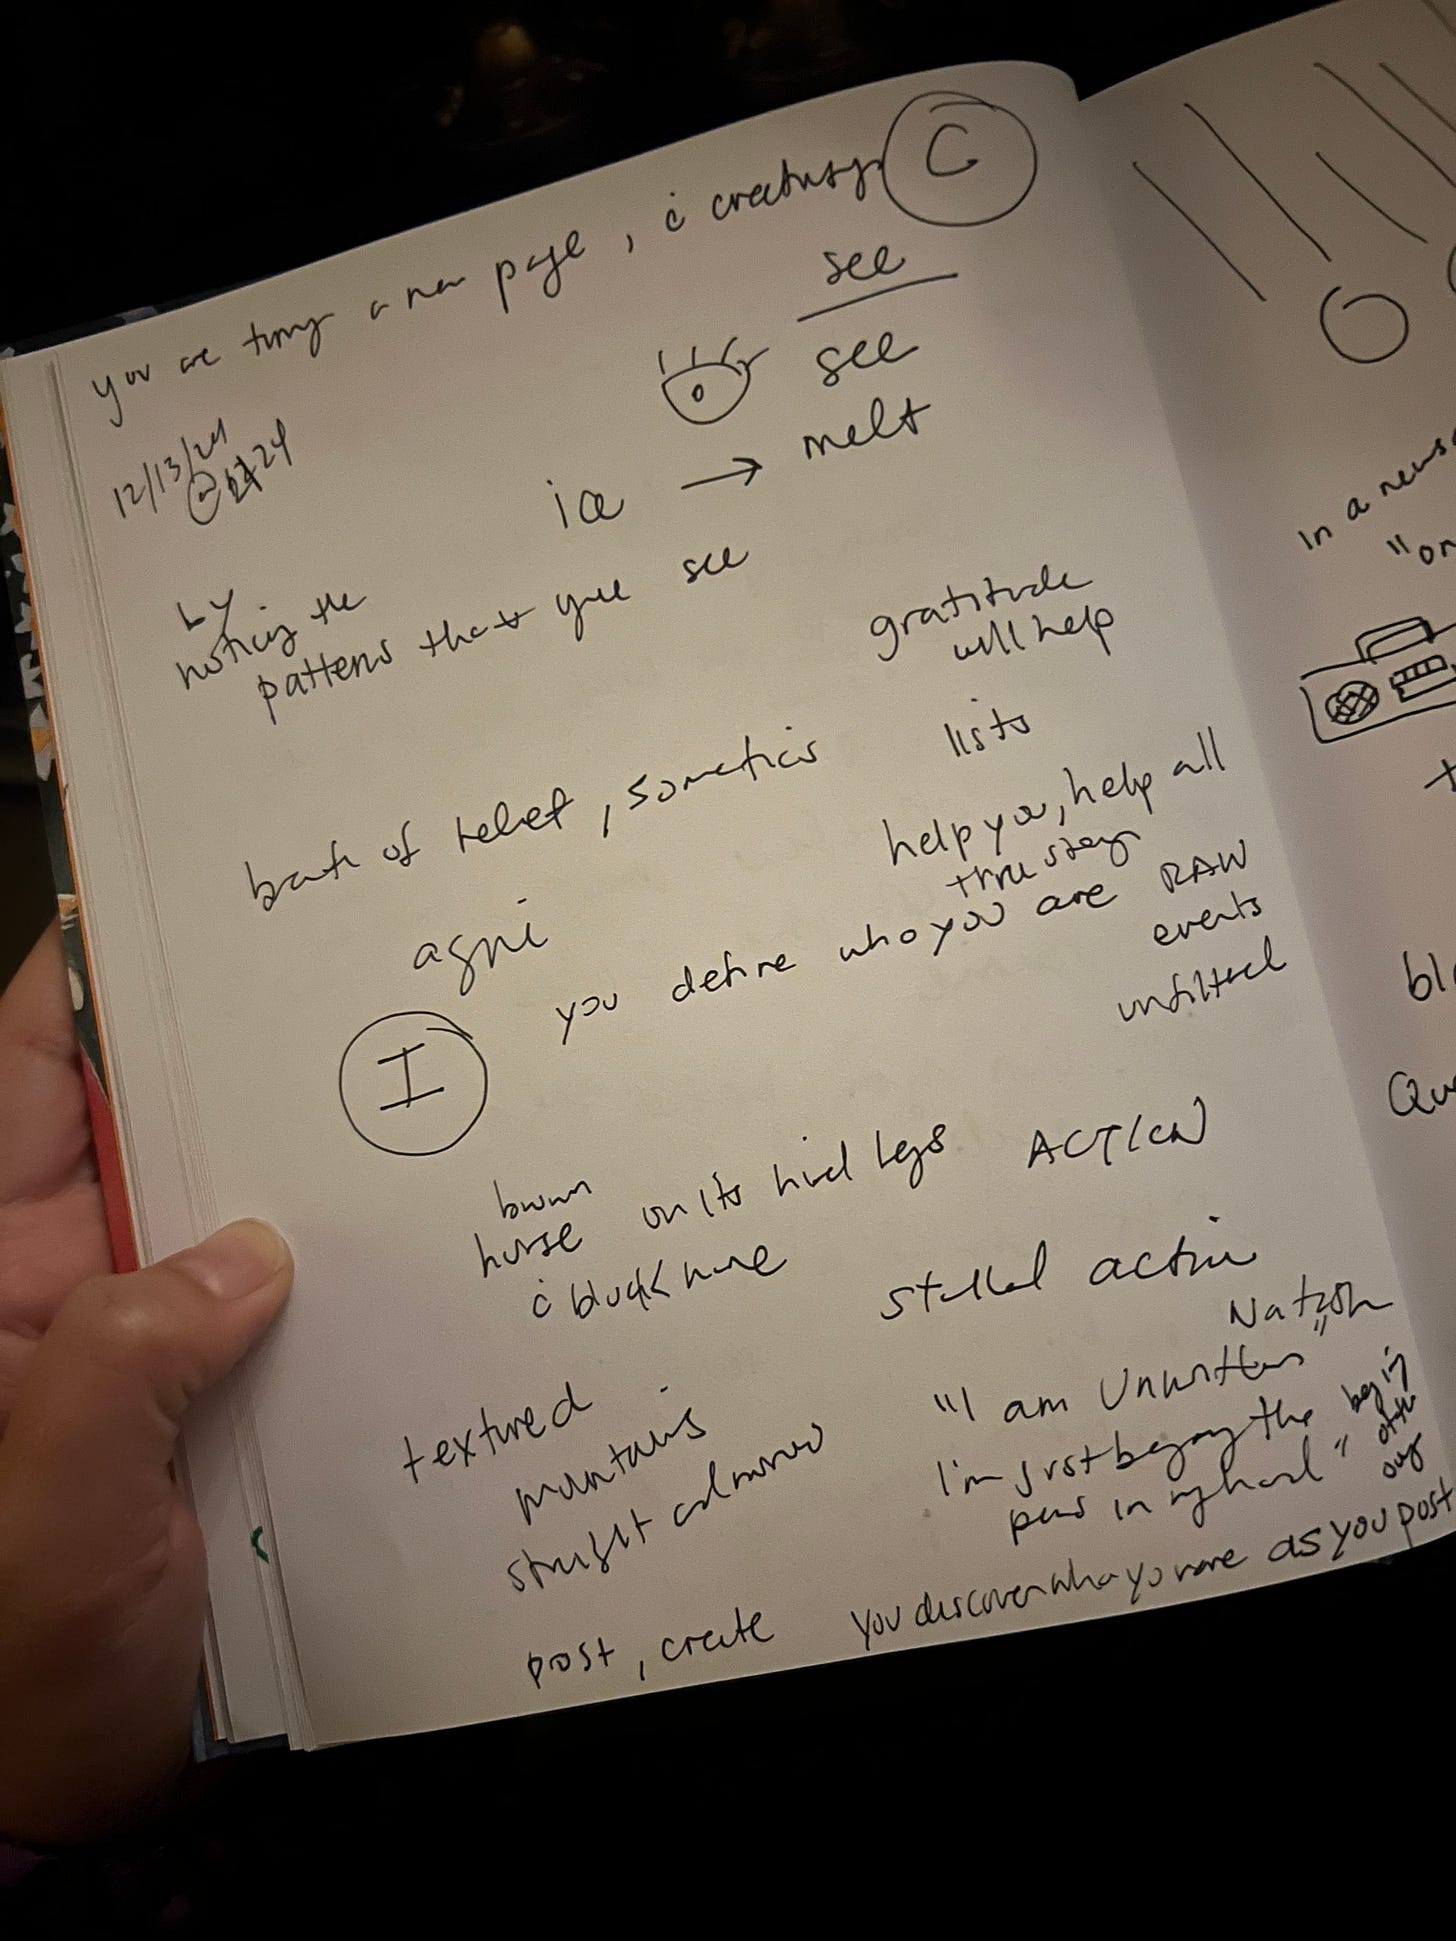 you are turning a new page, c̄ creativity
C
see
see
12/13/24
@ 24
ice → melt
by
noticing the
patterns that you see
gratitude
will help
bath of relief, somatics
lists
help you, help all
thru story
agni
you define who you are RAW
events
unfiltered
I
brown
horse on its hind legs ACTION
c̄ black mane
stalled action
Natash
textured
mountains
straight
"I am Unwritten"
I'm just beginning the
pens in my hand"
post, create
you discover who you are as you post
in a news
"on
bl
Qu